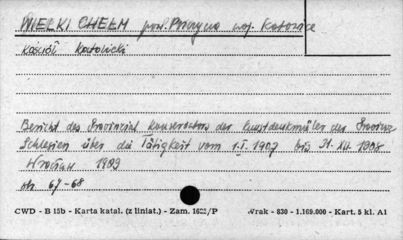 WIELKI CHEŁM pow. Pszczyna woj. Katowice
Kościół Katolicki
Bericht des Provinzial Konservators der Kunstdenkmäler der Provinz
Schlesien über die Tätigkeit vom 1.I. 1907 bis 31. XII. 1908
Wrocław 1909
str. 67-68
CWD - B 15b - Karta katal. (z liniat.) - Zam. 1622/P
Wrak - 830 - 1.169.000 - Kart. 5 kl. A1